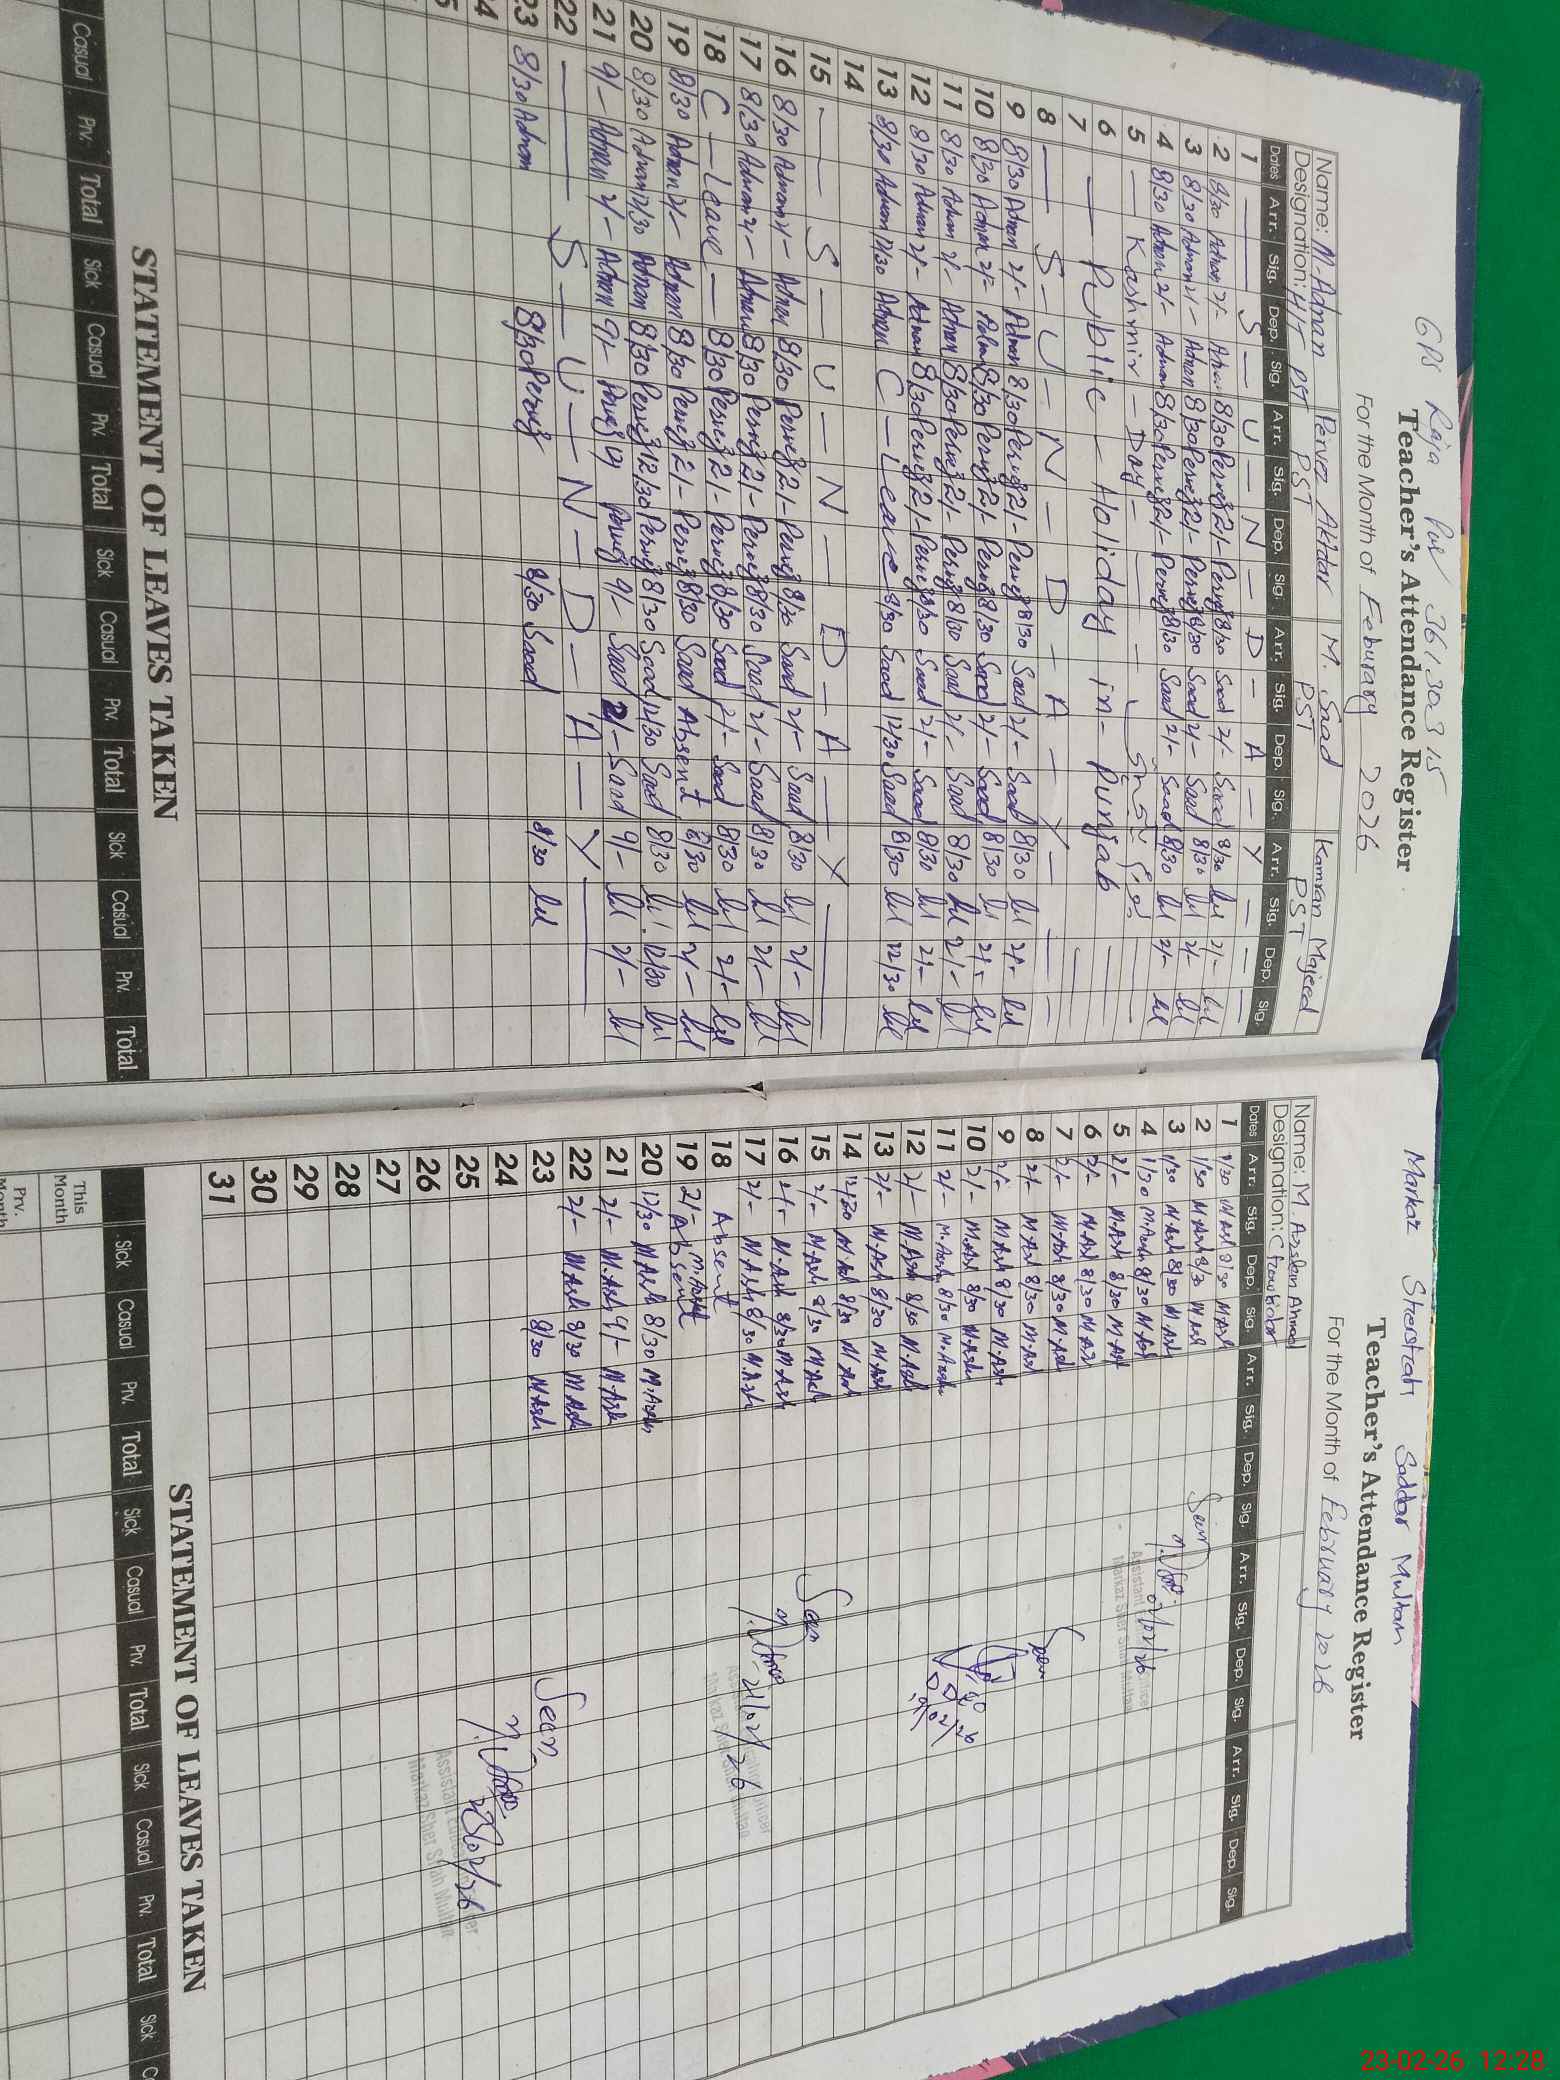 GPS Raja Pur 36130315
Teacher's Attendance Register
For the Month of Feburary 2026
Name: M. Adnan Pervez Akhtar M. Saad Kamran Majeed
Designation: HT PST PST PST PST
Dates Arr. Sig. Dep. Sig. Arr. Sig. Dep. Sig. Arr. Sig. Dep. Sig. Arr. Sig. Dep. Sig.
1 — S — U — N — D — A — Y —
2 8/30 Adnan 2/- Adnan 8/30 Pervez 2/- Pervez 8/30 Saad 2/- Saad 8/30 2/-
3 8/30 Adnan 2/- Adnan 8/30 Pervez 2/- Pervez 8/30 Saad 2/- Saad 8/30 2/-
4 8/30 Adnan 2/- Adnan 8/30 Pervez 2/- Pervez 8/30 Saad 2/- Saad 8/30 2/-
5 — Kashmir — Day —
6 — Public — Holiday in — Punjab
7
8 — S — U — N — D — A — Y —
9 8/30 Adnan 2/- Adnan 8/30 Pervez 2/- Pervez 8/30 Saad 2/- Saad 8/30 2/-
10 8/30 Adnan 2/- Adnan 8/30 Pervez 2/- Pervez 8/30 Saad 2/- Saad 8/30 2/-
11 8/30 Adnan 2/- Adnan 8/30 Pervez 2/- Pervez 8/30 Saad 2/- Saad 8/30 2/-
12 8/30 Adnan 2/- Adnan 8/30 Pervez 2/- Pervez 8/30 Saad 2/- Saad 8/30 2/-
13 8/30 Adnan 12/30 Adnan C — Leave 8/30 Saad 12/30 Saad 8/30 12/30
14
15 — S — U — N — D — A — Y
16 8/30 Adnan 2/- Adnan 8/30 Pervez 2/- Pervez 8/30 Saad 2/- Saad 8/30 2/-
17 8/30 Adnan 2/- Adnan 8/30 Pervez 2/- Pervez 8/30 Saad 2/- Saad 8/30 2/-
18 C — Leave — 8/30 Pervez 2/- Pervez 8/30 Saad 2/- Saad 8/30 2/-
19 8/30 Adnan 2/- Adnan 8/30 Pervez 2/- Pervez 8/30 Saad Absent 8/30 2/-
20 8/30 Adnan 12/30 Adnan 8/30 Pervez 12/30 Pervez 8/30 Saad 12/30 Saad 8/30 12/30
21 9/- Adnan 2/- Adnan 9/- Pervez Pervez 9/- Saad 2/- Saad 9/- 2/-
22 — S — U — N — D — A — Y
23 8/30 Adnan 8/30 Pervez 8/30 Saad 8/30
STATEMENT OF LEAVES TAKEN
Casual Prv. Total Sick Casual Prv. Total Sick Casual Prv. Total Sick Casual Prv. Total
Markaz Shershah Saddar Multan
Teacher's Attendance Register
For the Month of February 2026
Name: M. Arslan Ahmad
Designation:
Dates Arr. Sig. Dep. Sig. Arr. Sig. Dep. Sig. Arr. Sig. Dep. Sig. Arr. Sig. Dep. Sig.
1 1/30 M.Arsh 8/30 M.Arsh
2 1/30 M.Arsh 8/30 M.Arsh
3 1/30 M.Arsh 8/30 M.Arsh
4 1/30 M.Arsh 8/30 M.Arsh
5 2/- M.Arsh 8/30 M.Arsh
6 2/- M.Arsh 8/30 M.Arsh
7 2/- M.Arsh 8/30 M.Arsh
8 2/- M.Arsh 8/30 M.Arsh
9 2/- M.Arsh 8/30 M.Arsh
10 2/- M.Arsh 8/30 M.Arsh
11 2/- M.Arsh 8/30 M.Arsh
12 2/- M.Arsh 8/30 M.Arsh
13 2/- M.Arsh 8/30 M.Arsh
14 12/30 M.Arsh 8/30 M.Arsh
15 2/- M.Arsh 8/30 M.Arsh
16 2/- M.Arsh 8/30 M.Arsh
17 2/- M.Arsh 8/30 M.Arsh
18 Absent
19 2/- Absent
20 12/30 M.Arsh 8/30 M.Arsh
21 2/- M.Arsh 9/- M.Arsh
22 2/- M.Arsh 8/30 M.Arsh
23 8/30 M.Arsh
24
25
26
27
28
29
30
31
Seen
Markaz Sher Shah Multan
Seen
09/02/26
Seen
21/02/26
Seen
23/02/26
Markaz Sher Shah Multan
STATEMENT OF LEAVES TAKEN
Sick Casual Prv. Total Sick Casual Prv. Total Sick Casual Prv. Total Sick
This Month
Prv. Month
23-02-26 12:28